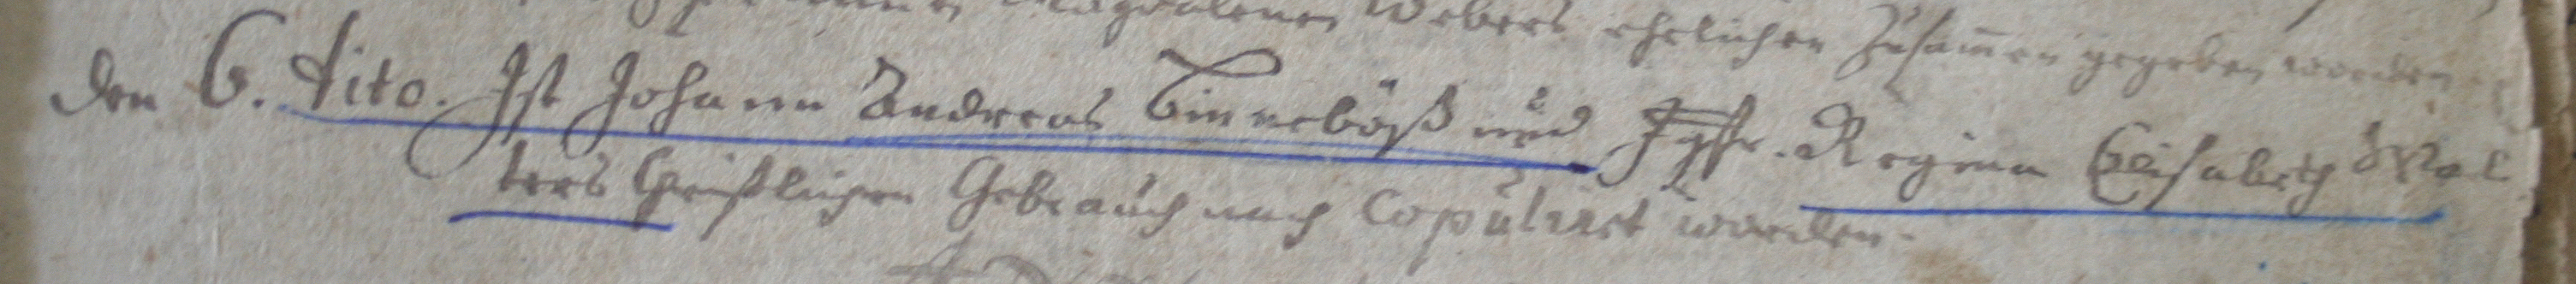 Magdalenen Webers ehelichen Zusam̅en gegeben worden.
den 6. dito. Ist Johann Andreas Binneböß und Jgfr. Regina Elisabeth Wal
ters Christlichen Gebrauch nach Copuliret worden.